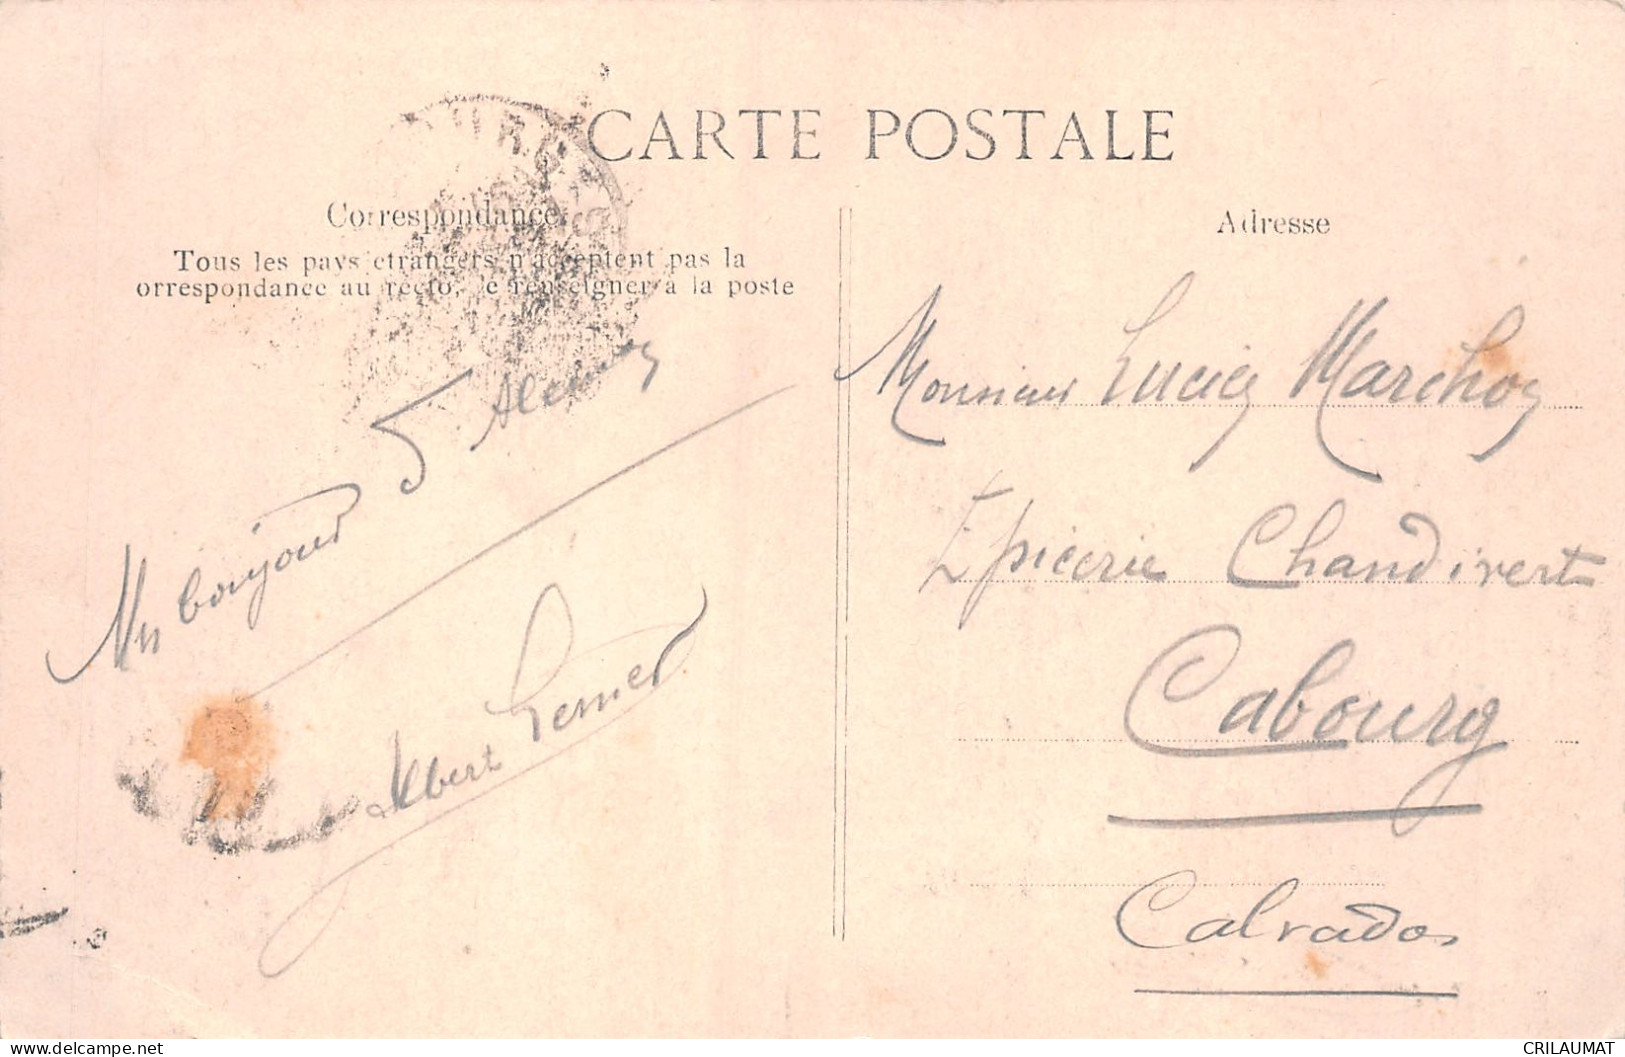 CARTE POSTALE
Correspondance
Tous les pays étrangers n'acceptent pas la
orrespondance au recto, se renseigner à la poste
Adresse
Un bonjour d'
Albert
Monsieur Lucien
Epicerie Chandivert
Cabourg
Calvados
CRILAUMAT